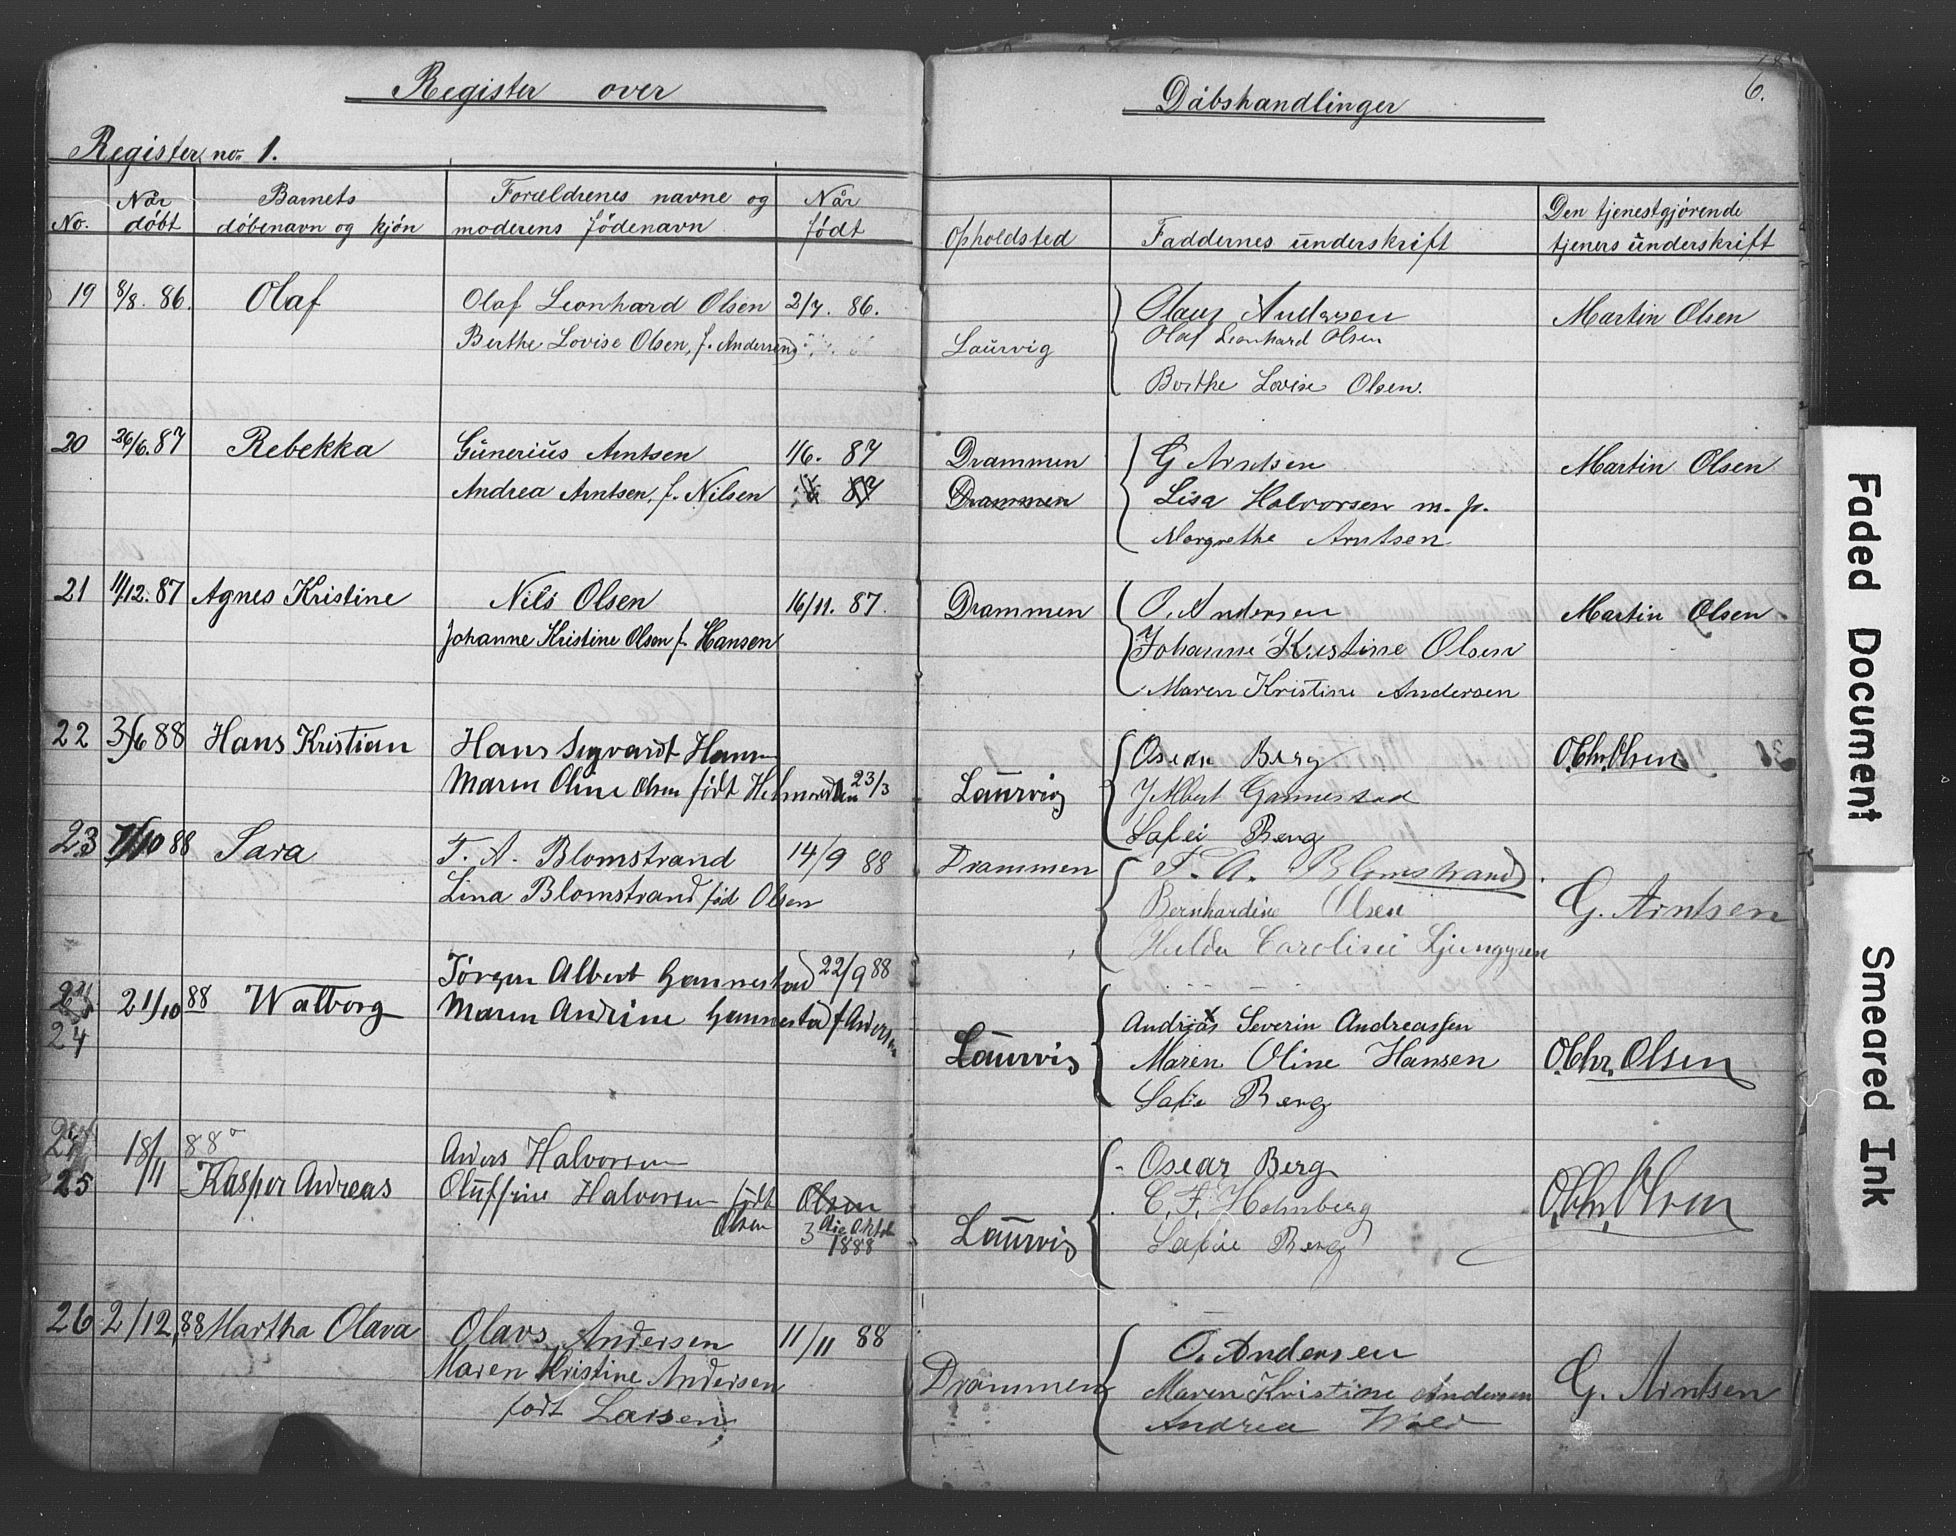 Register over
Register no. 1.
No.
Når døbt
Barnets døbenavn og kjøn
Forældrenes navne og moderens fødenavn
Når født
19 8/8. 86. Olaf Olaf Leonhard Olsen 2/7. 86.
Berthe Lovise Olsen, f. Andersen
20 26/6.87 Rebekka Günerius Arntsen 1/6. 87
Andrea Arntsen, f. Nilsen 87
21 11/12.87 Agnes Kristine Nils Olsen 16/11. 87.
Johanne Kristine Olsen f. Hansen
22 3/6 88 Hans Kristian Hans Sigvardt Hansen
Maren Oline Olsen født 23/3
23 7/10 88 Sara F. A. Blomstrand 14/9 88
Lina Blomstrand fød Olsen
Jørgen Albert Gannestad 22/9 88
21/10 88 Walborg Maren Andrine Gannestad f Andersen
24
18/11 88 Anders Halvorsen
25 Kasper Andreas Oluffine Halvorsen født Olsen
Olsen 3die Oktob
1888
26 2/12, 88 Martha Olava Olavs Andersen 11/11 88
Maren Kristine Andersen
født Larsen
6.
Dåbshandlinger
Opholdsted
Faddernes underskrift
Den tjenestgjørende
tjeners underskrift
Olaus Andersen Martin Olsen
Olaf Leonhard Olsen
Laurvig
Berthe Lovise Olsen.
Drammen G Arntsen Martin Olsen
Drammen Lisa Halvorsen m. p.
Margrethe Arntsen
Drammen O. Andersen Martin Olsen
Johanne Kristine Olsen
Maren Kristine Andersen
Oscar Berg O.Chr.Olsen
Laurvig J Albert Gannestad
Sofie Berg
Drammen F. A. Blomstrand
Bernhardine Olsen G. Arntsen
Hulda Caroline Ljunggren
Andreas Severin Andreassen
Laurvig Maren Oline Hansen O.Chr. Olsen
Sofie Berg
Oscar Berg
C. F. Holmberg O.Chr. Olsen
Laurvig Sofie Berg
O. Andersen
Drammen Maren Kristine Andersen G. Arntsen
Andrea Wold
Faded Document
Smeared Ink